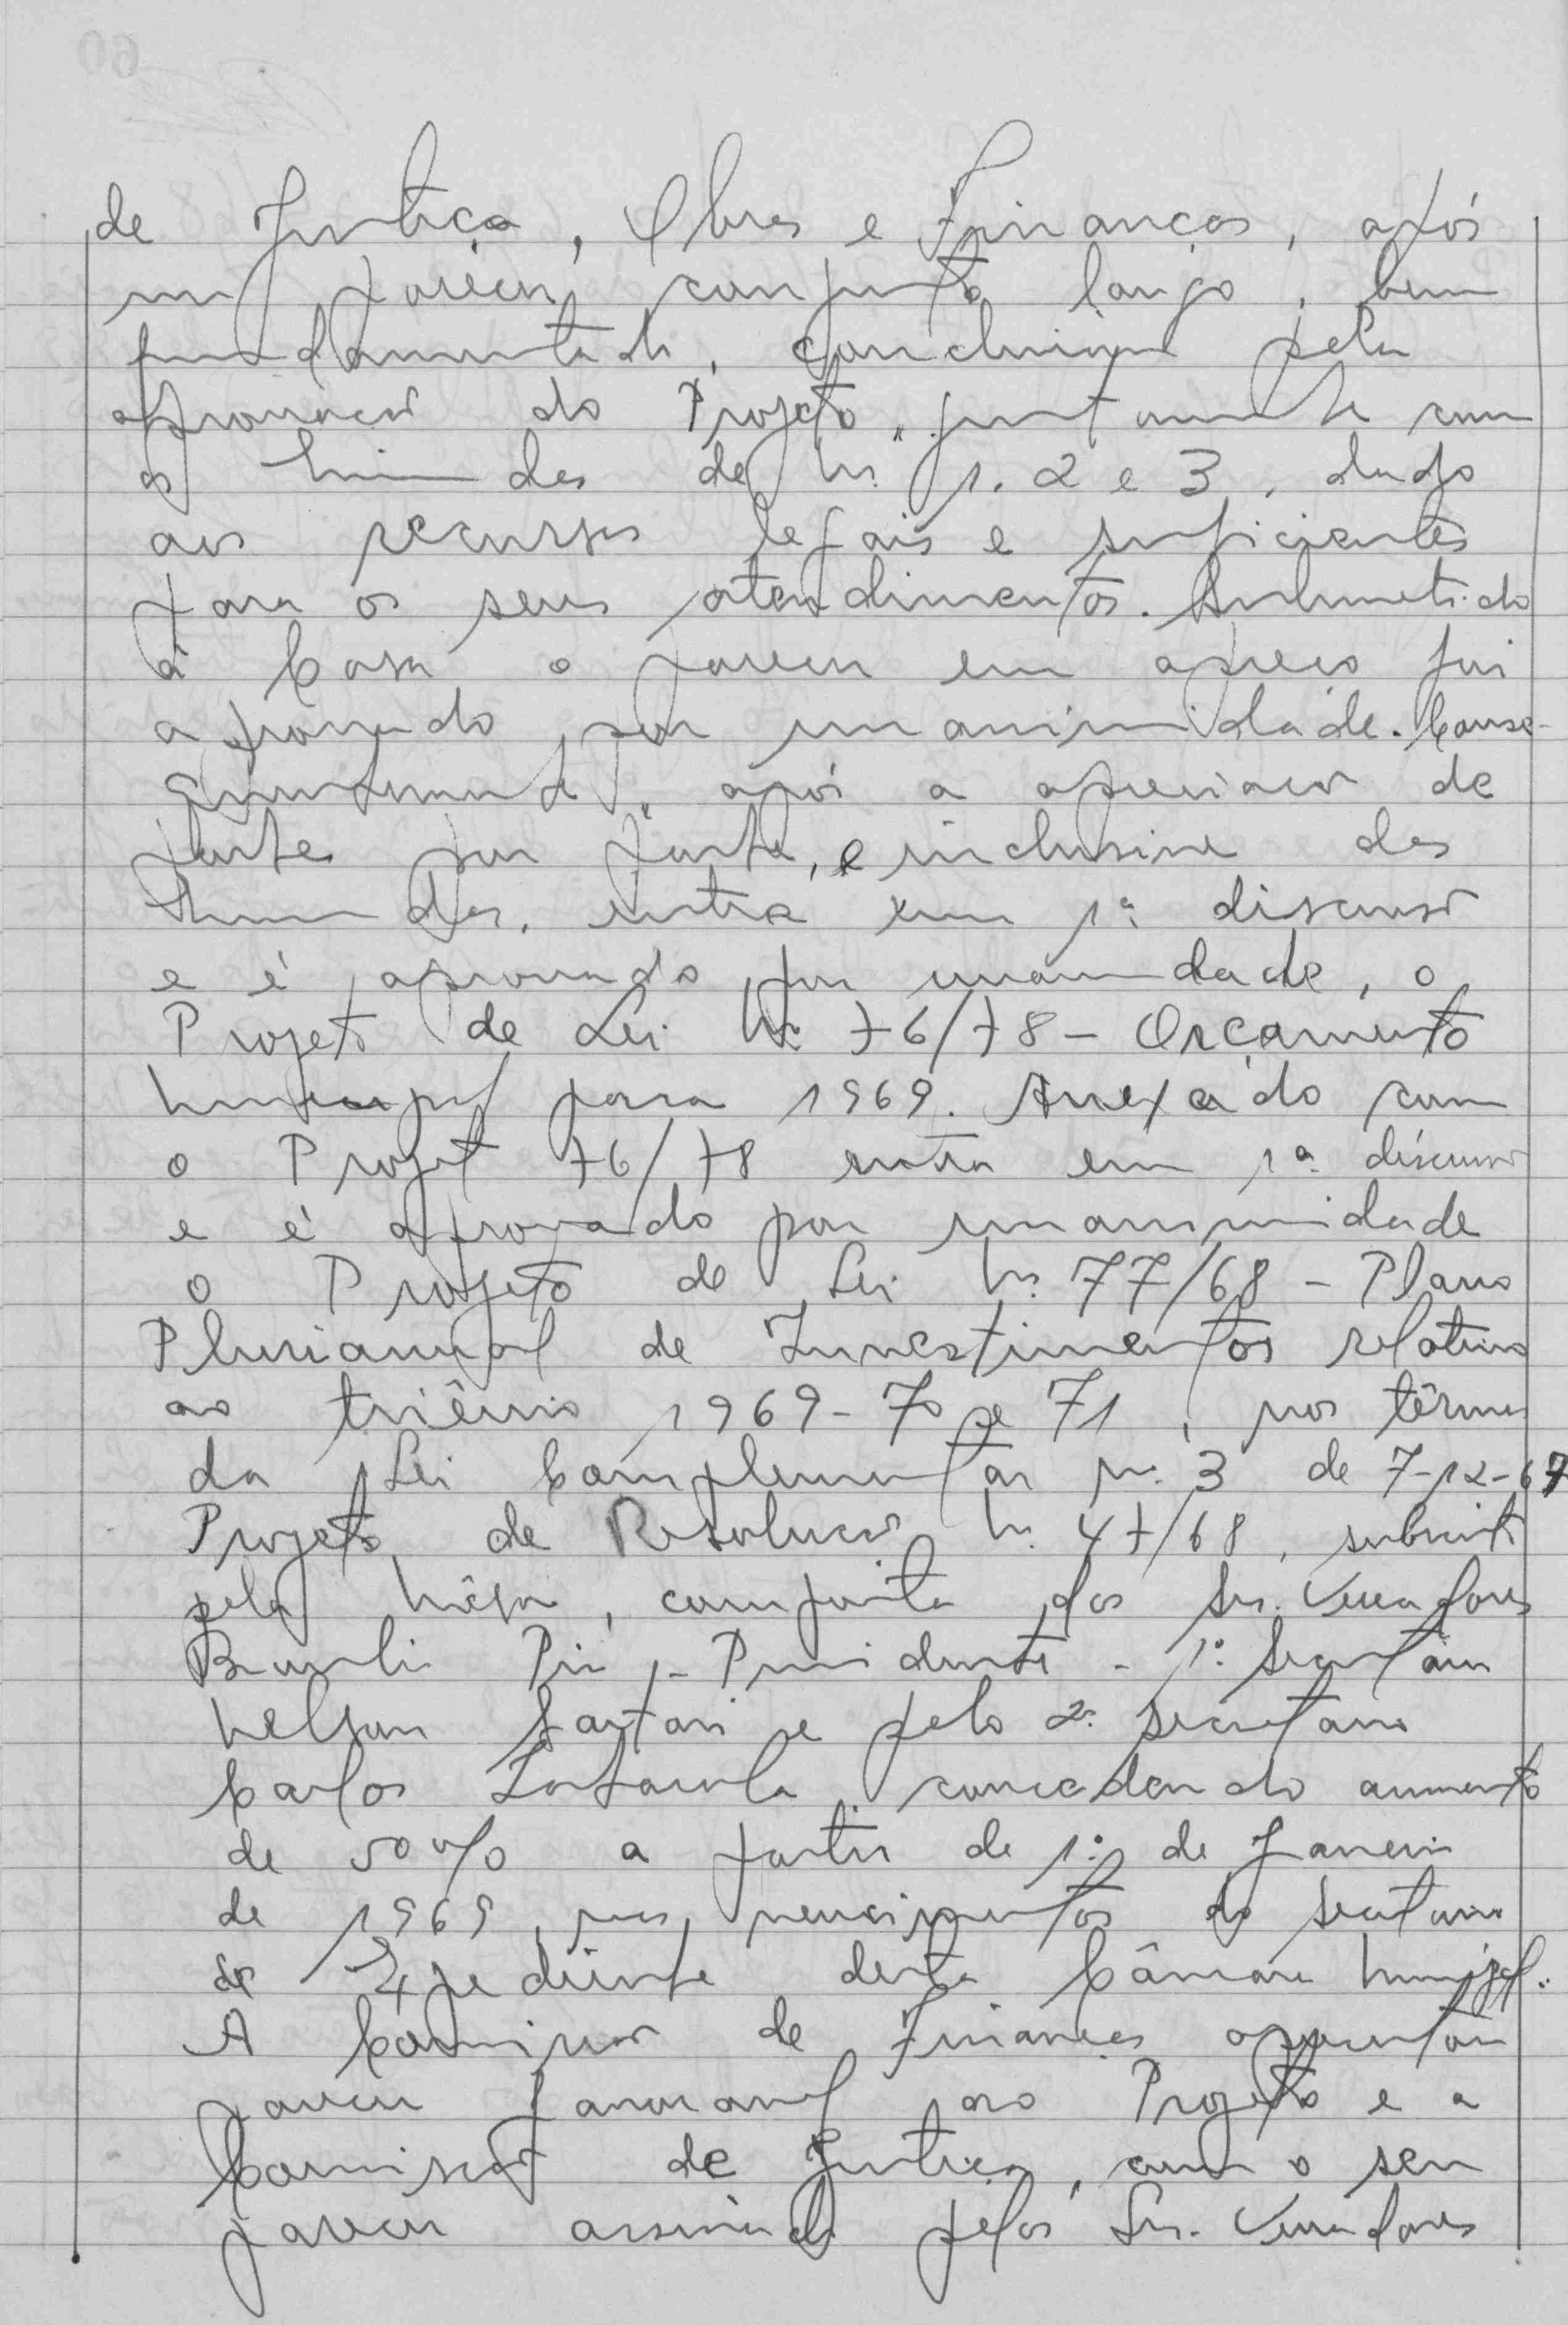 de Justiça, Obras e Finanças, após
um parecer conjunto longo, bem
fundamentado, concluiram pela
aprovação do Projeto, juntamente com
as Emendas de Nr. 1. 2 e 3, dado
aos recursos legais e suficientes
para os seus atendimentos. Submetido
à Casa o parecer em apreço foi
aprovado por unanimidade. Conse-
quentemente, após a apreciação de
parte por parte, e inclusive das
Emendas, entra em 1ª discussão
e é aprovado por unanimidade, o
Projeto de Lei Nr. 76/78 - Orçamento
Municipal para 1969. Anexado com
o Projeto 76/78 entra em 1ª discussão
e é aprovado por unanimidade
o Projeto de Lei Nr. 77/68 - Plano
Plurianual de Investimentos relativo
ao triênio 1969-70 e 71, nos têrmos
da Lei Complementar nr. 3 de 7-12-67
Projeto de Resolução Nr. 47/68, subscrito
pela Mêsa, composta dos Srs. Vereadores
Pri, - Presidente - 1º Secretário
Nelson Sartori e pelo 2º Secretario
Carlos concedendo aumento
de 50% a partir de 1º de Janeiro
de 1969, nos vencimentos do Secretario
de Expediente desta Câmara Municipal.
A Comissão de Finanças apresentou
parecer favoravel ao Projeto e a
Comissão de Justiça, com o seu
parecer assinado pelos Srs. Vereadores